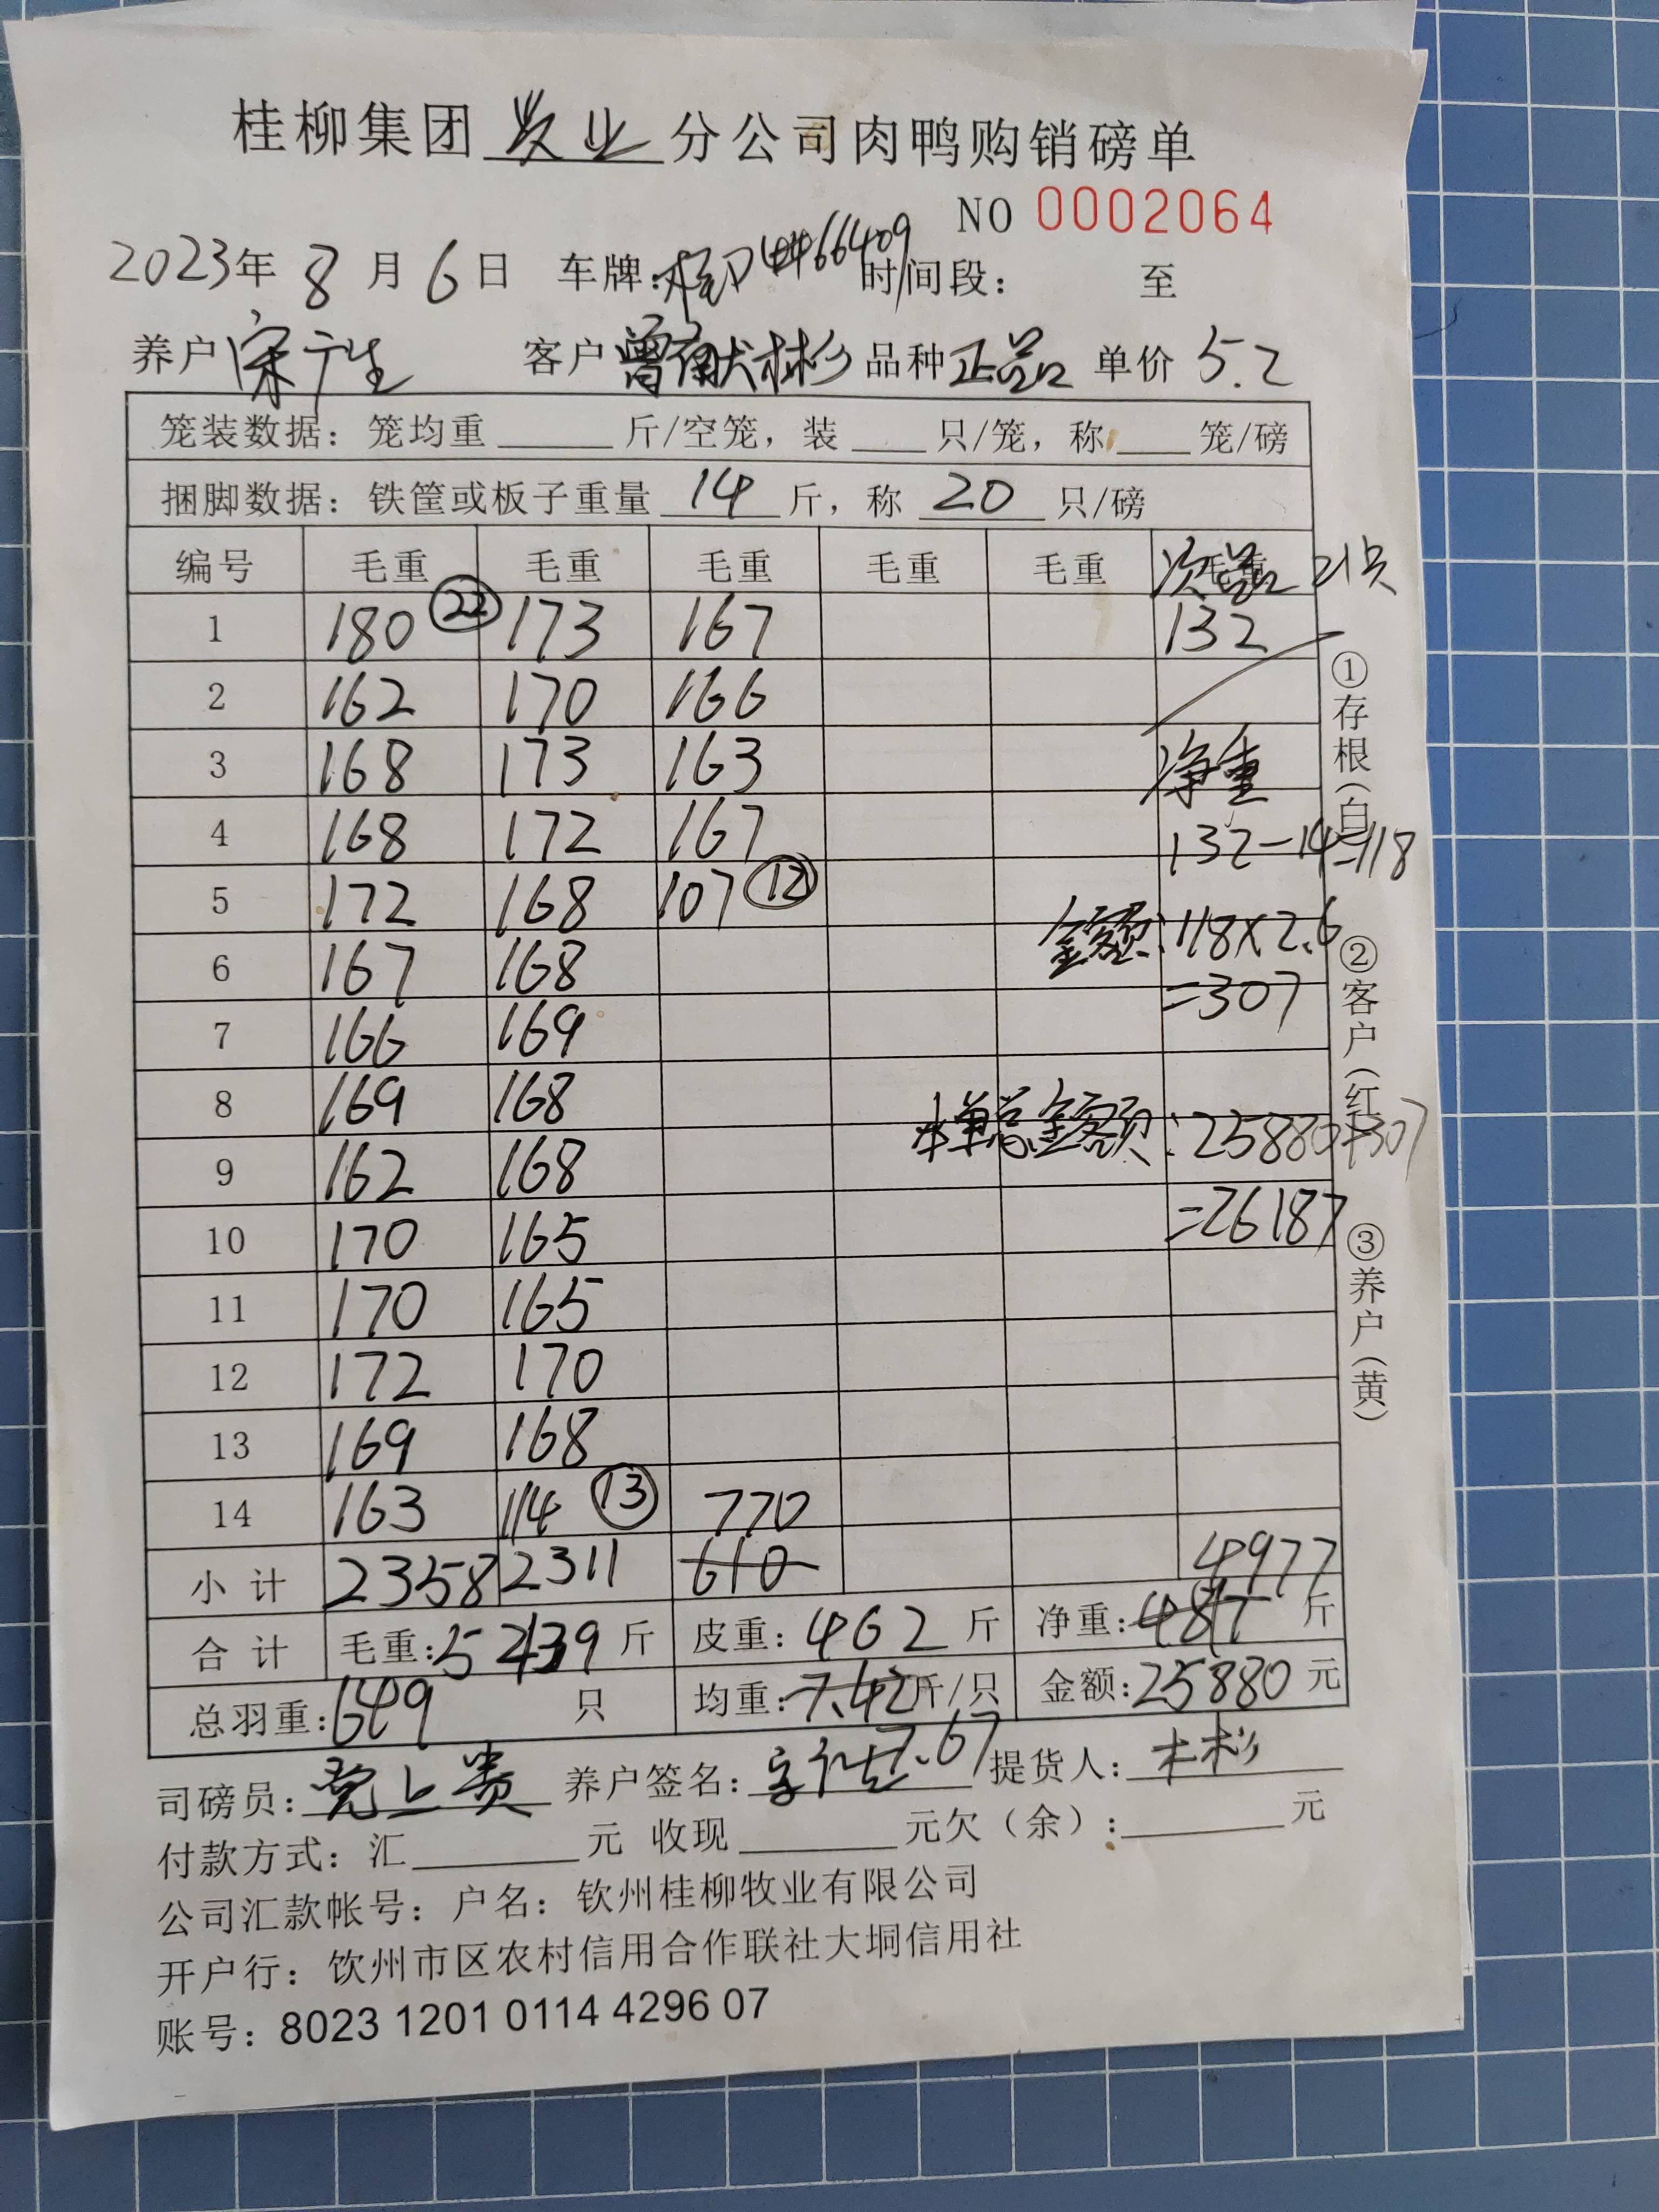 桂柳集团牧业分公司肉鸭购销磅单
NO 0002064
2023年 8 月 6 日 车牌: 66409 时间段: 至
养户 宋 生 客户 曾献彬 品种 正品 单价 5.2
笼装数据: 笼均重 ____ 斤/空笼, 装 ____ 只/笼, 称 ____ 笼/磅
捆脚数据: 铁筐或板子重量 14 斤, 称 20 只/磅
编号 毛重 毛重 毛重 毛重 毛重 毛重 次品 21只
1 180 ㉒ 173 167 132
2 162 170 166
3 168 173 163 净重
4 168 172 167 132-14=118
5 172 168 107 ⑫
6 167 168 金额:118×2.6
7 166 169 =307
8 169 168
9 162 168 本单总金额:25880+307
10 170 165 =26187
11 170 165
12 172 170
13 169 168
14 163 114 ⑬ 770
小计 2358 2311 610 4977
合计 毛重: 5439 斤 皮重: 462 斤 净重: 4817 斤
总羽重: 649 只 均重: 7.42 斤/只 金额: 25880 元
7.67
司磅员: 上贵 养户签名: 提货人: 彬
付款方式: 汇 ____ 元 收现 ____ 元欠(余): ____ 元
公司汇款帐号: 户名: 钦州桂柳牧业有限公司
开户行: 钦州市区农村信用合作联社大垌信用社
账号: 8023 1201 0114 4296 07
①存根(白) ②客户(红) ③养户(黄)